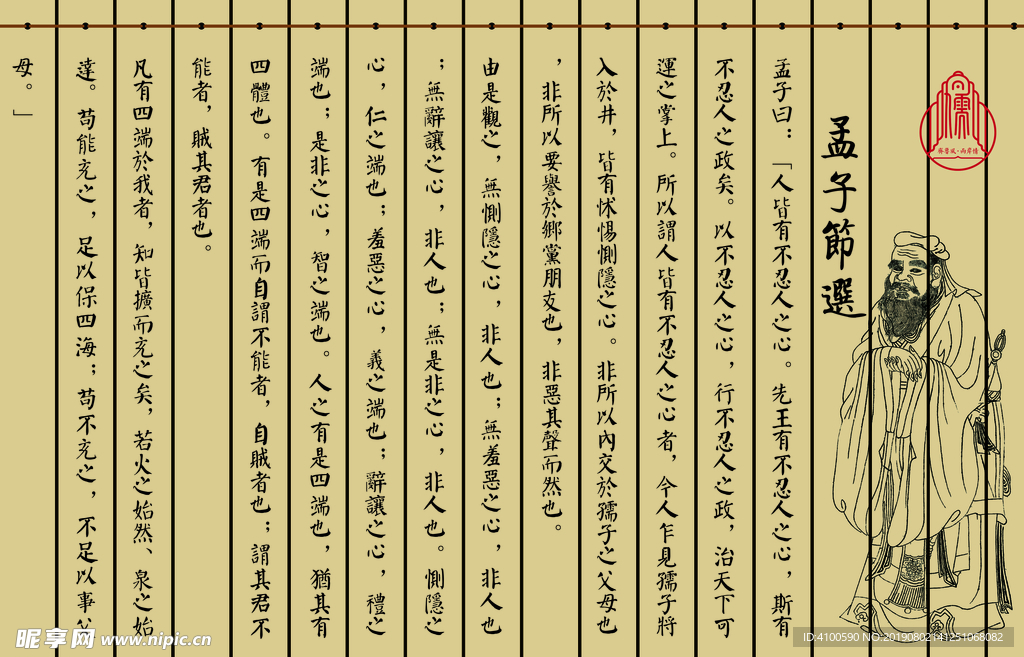 儒
齊魯風·兩岸情
孟子節選
孟子曰：「人皆有不忍人之心。先王有不忍人之心，斯有
不忍人之政矣。以不忍人之心，行不忍人之政，治天下可
運之掌上。所以謂人皆有不忍人之心者，今人乍見孺子將
入於井，皆有怵惕惻隱之心。非所以內交於孺子之父母也
，非所以要譽於鄉黨朋友也，非惡其聲而然也。
由是觀之，無惻隱之心，非人也；無羞惡之心，非人也
；無辭讓之心，非人也；無是非之心，非人也。惻隱之
心，仁之端也；羞惡之心，義之端也；辭讓之心，禮之
端也；是非之心，智之端也。人之有是四端也，猶其有
四體也。有是四端而自謂不能者，自賊者也；謂其君不
能者，賊其君者也。
凡有四端於我者，知皆擴而充之矣，若火之始然、泉之始
達。苟能充之，足以保四海；苟不充之，不足以事父
母。」
昵享网 www.nipic.cn
ID:4100590 NO:20190802141251068082